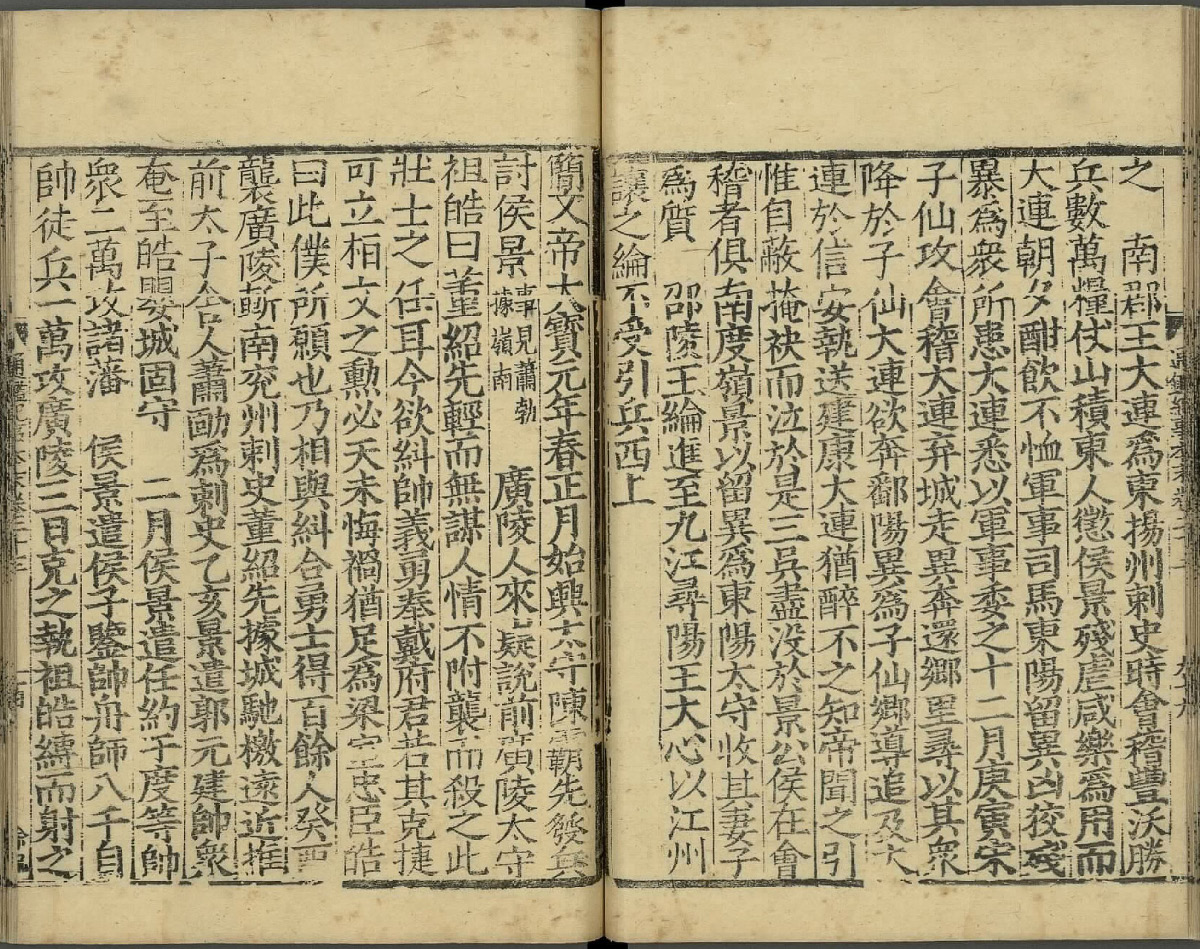 之　南郡王大連爲東揚州刺史時會稽豐沃勝
兵數萬糧仗山積東人懲侯景殘虐咸樂爲用而
大連朝夕酣飲不恤軍事司馬東陽留異凶狡殘
暴爲衆所患大連悉以軍事委之十二月庚寅宋
子仙攻會稽大連弃城走異奔還鄉里尋以其衆
降於子仙大連欲奔鄱陽異爲子仙鄉導追及大
連於信安執送建康大連猶醉不之知帝聞之引
惟自蔽掩袂而泣於是三吳盡没於景公侯在會
稽者俱南度嶺景以留異爲東陽太守收其妻子
爲質　邵陵王綸進至九江尋陽王大心以江州
讓之綸不受引兵西上
簡文帝大寶元年春正月始興太守陳霸先發兵
討侯景事見蕭勃據嶺南　廣陵人來嶷說前廣陵太守
祖皓曰董紹先輕而無謀人情不附襲而殺之此
壯士之任耳今欲糾帥義勇奉戴府君若其克捷
可立桓文之勳必天未悔禍猶足爲梁室忠臣皓
曰此僕所願也乃相與糾合勇士得百餘人癸酉
襲廣陵斬南兖州刺史董紹先據城馳檄遠近推
前太子舍人蕭勔爲刺史乙亥景遣郭元建帥衆
奄至皓嬰城固守　二月侯景遣任約于慶等帥
衆二萬攻諸藩　侯景遣侯子鑒帥舟師八千自
帥徒兵一萬攻廣陵三日克之執祖皓縛而射之